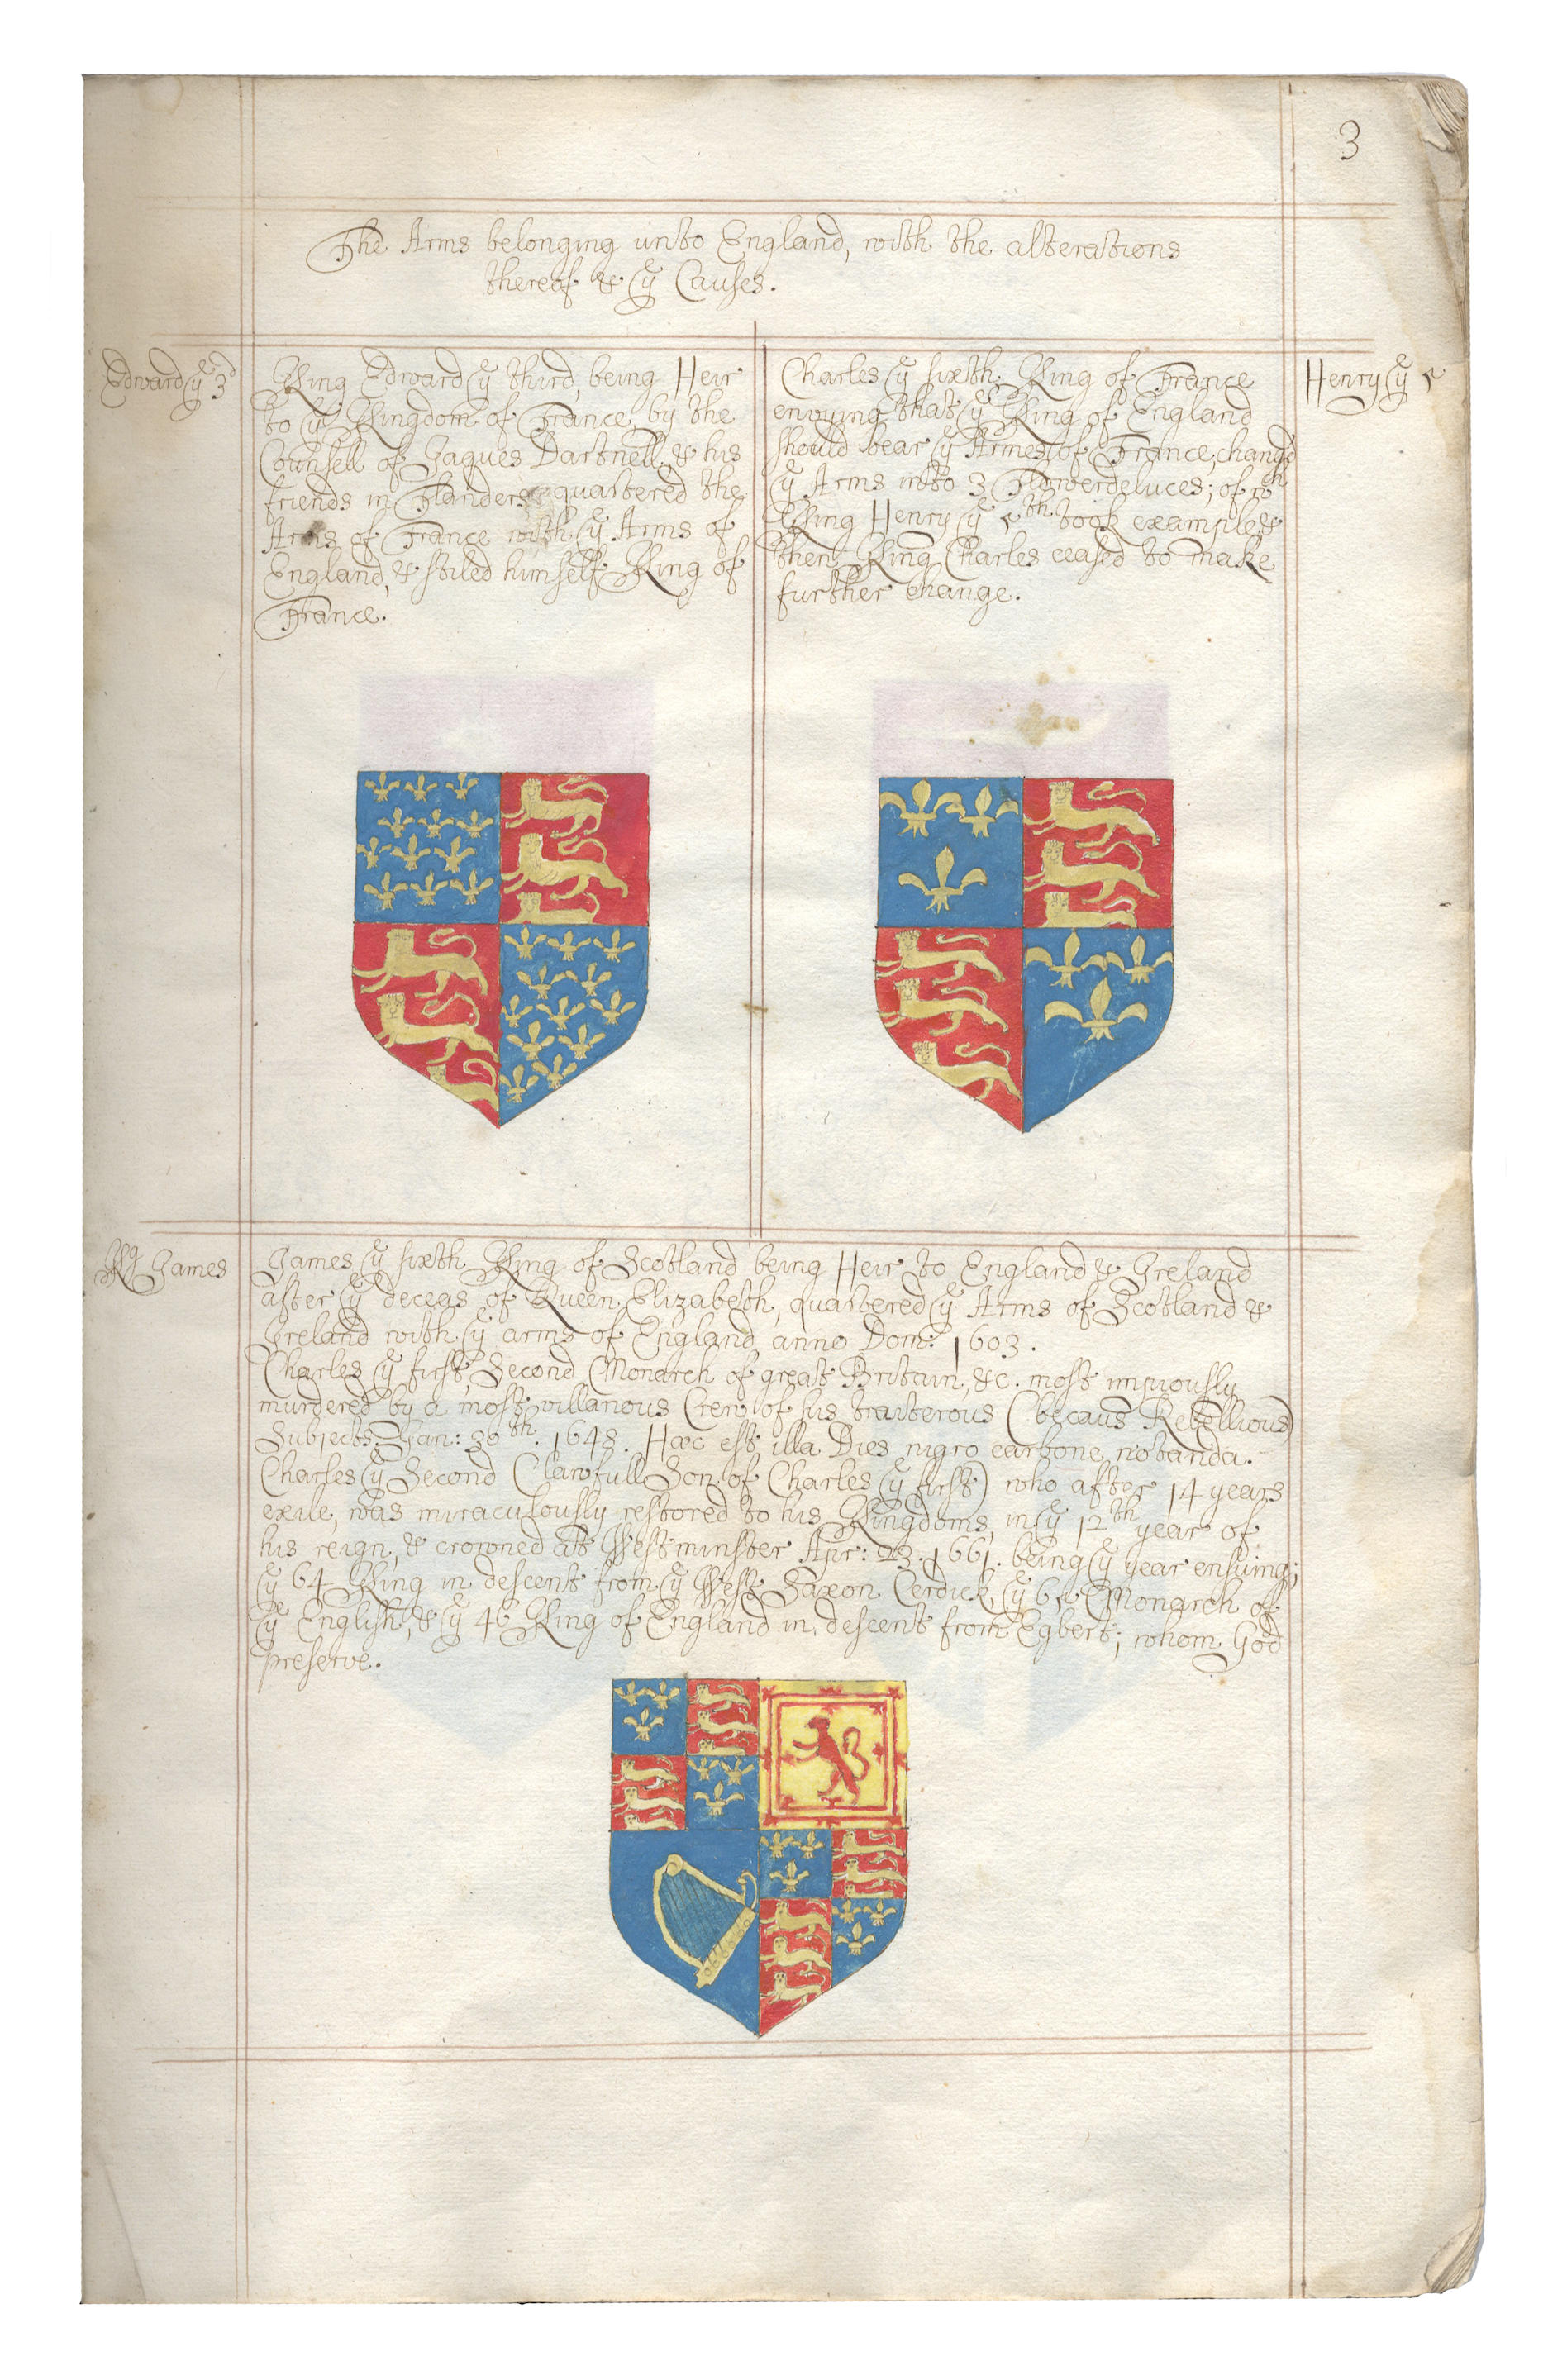 3
The Arms belonging unto England, with the alterations
thereof & yͤ Causes.
Edward yͤ 3ᵈ
King Edward yͤ third, being Heir
to yͤ Kingdom of France, by the
Counsell of Jaques Dartnell, & his
friends in Flanders quartered the
Arms of France with yͤ Arms of
England, & stiled himself King of
France.
Charles yͤ sixth, King of France
envying that yͤ King of England
should bear yͤ Armes of France, changd
yͤ Arms into 3 Flowerdeluces; of wᶜʰ
King Henry yͤ 5ᵗʰ took example &
then King Charles ceased to make
further change.
Henry yͤ 5
Kg James
James yͤ sixth King of Scotland being Heir to England & Ireland
after yͤ deceas of Queen Elizabeth, quartered yͤ Arms of Scotland &
Ireland with yͤ arms of England, anno Dom: 1603.
Charles yͤ first, Second Monarch of great Britain, &c. most impiously
murdered by a most villanous Crew of his traiterous (becaus Rebellious)
Subjects, Jan: 30ᵗʰ. 1648. Hæc est illa Dies nigro carbone notanda.
Charles yͤ Second (lawfull Son of Charles yͤ first) who after 14 years
exile, was miraculously restored to his Kingdoms, in yͤ 12ᵗʰ year of
his reign, & crowned at Westminster Apr: 23. 1661. being yͤ year ensuing;
yͤ 64 King in descent from yͤ West Saxon Cerdick, yͤ Monarch of
yͤ English, & yͤ 46 King of England in descent from Egbert; whom God
preserve.